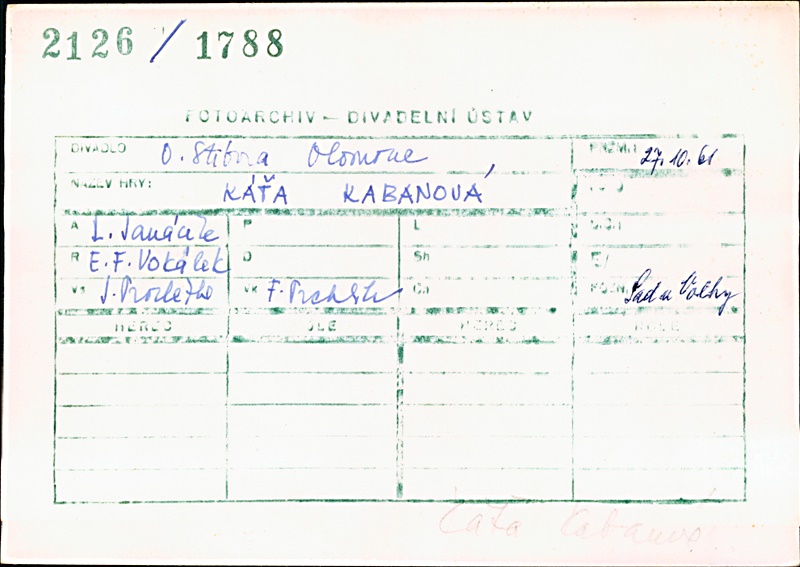 2126 / 1788
FOTOARCHIV — DIVADELNÍ ÚSTAV
DIVADLO O. Stibora Olomouc 27.10.61
NÁZEV HRY: KÁŤA KABANOVÁ
A L. Janáček P L
R E. F. Vokálek D Sh
Vs Vk Ch POZN. Sad u Volhy
HEREC ROLE HEREC ROLE
Káťa Kabanová